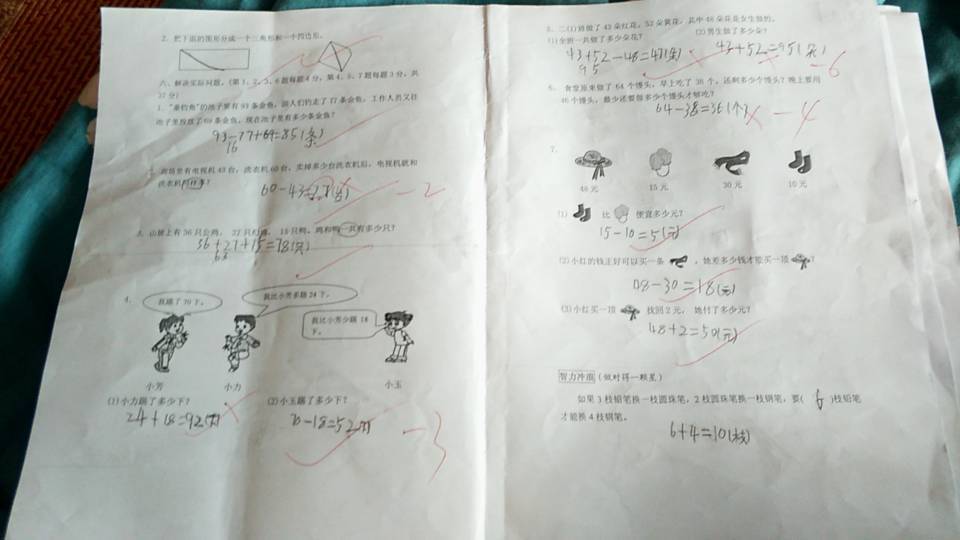 2. 把下面的图形分成一个三角形和一个四边形。
六、解决实际问题。(第1、2、3、6题每题4分,第4、5、7题每题3分,共
37分)
1. "垂钓角"的池子里有93条金鱼,园人们钓走了77条金鱼,工作人员又往
池子里投放了69条金鱼,现在池子里有多少条金鱼?
93-77+69=85(条)
16
商场里有电视机43台,洗衣机60台,卖掉多少台洗衣机后,电视机就和
洗衣机同样多?
60-43=
-2
3. 山坡上有36只公鸡,27只母鸡,15只鸭,鸡和鸭一共有多少只?
36+27+15=78(只)
63
4.
我踢了70下。
我比小芳多踢24下。
我比小芳少踢18
下。
小芳
小力
小玉
(1)小力踢了多少下?
(2)小玉踢了多少下?
24+18=92(下)
70-18=52(下)
-3
5. 二(1)班做了43朵红花,52朵黄花,其中48朵花是女生做的。
(1)全班一共做了多少朵花?
(2)男生做了多少朵?
43+52-48=47(朵)
95
43+52=95(朵)
-6
6. 食堂原来做了64个馒头,早上吃了38个,还剩多少个馒头?晚上要用
46个馒头,最少还要做多少个馒头才够吃?
64-38=36(个)
-4
7.
48元
15元
30元
10元
(1) 比 便宜多少元?
15-10=5(元)
(2)小红的钱正好可以买一条 ,她差多少钱才能买一顶 ?
48-30=18(元)
(3)小红买一顶 找回2元,她付了多少元?
48+2=50(元)
智力冲浪(做对得一颗星)
如果3枝铅笔换一枝圆珠笔,2枝圆珠笔换一枝钢笔,要( 6 )枝铅笔
才能换4枝钢笔。
6+4=10(枝)